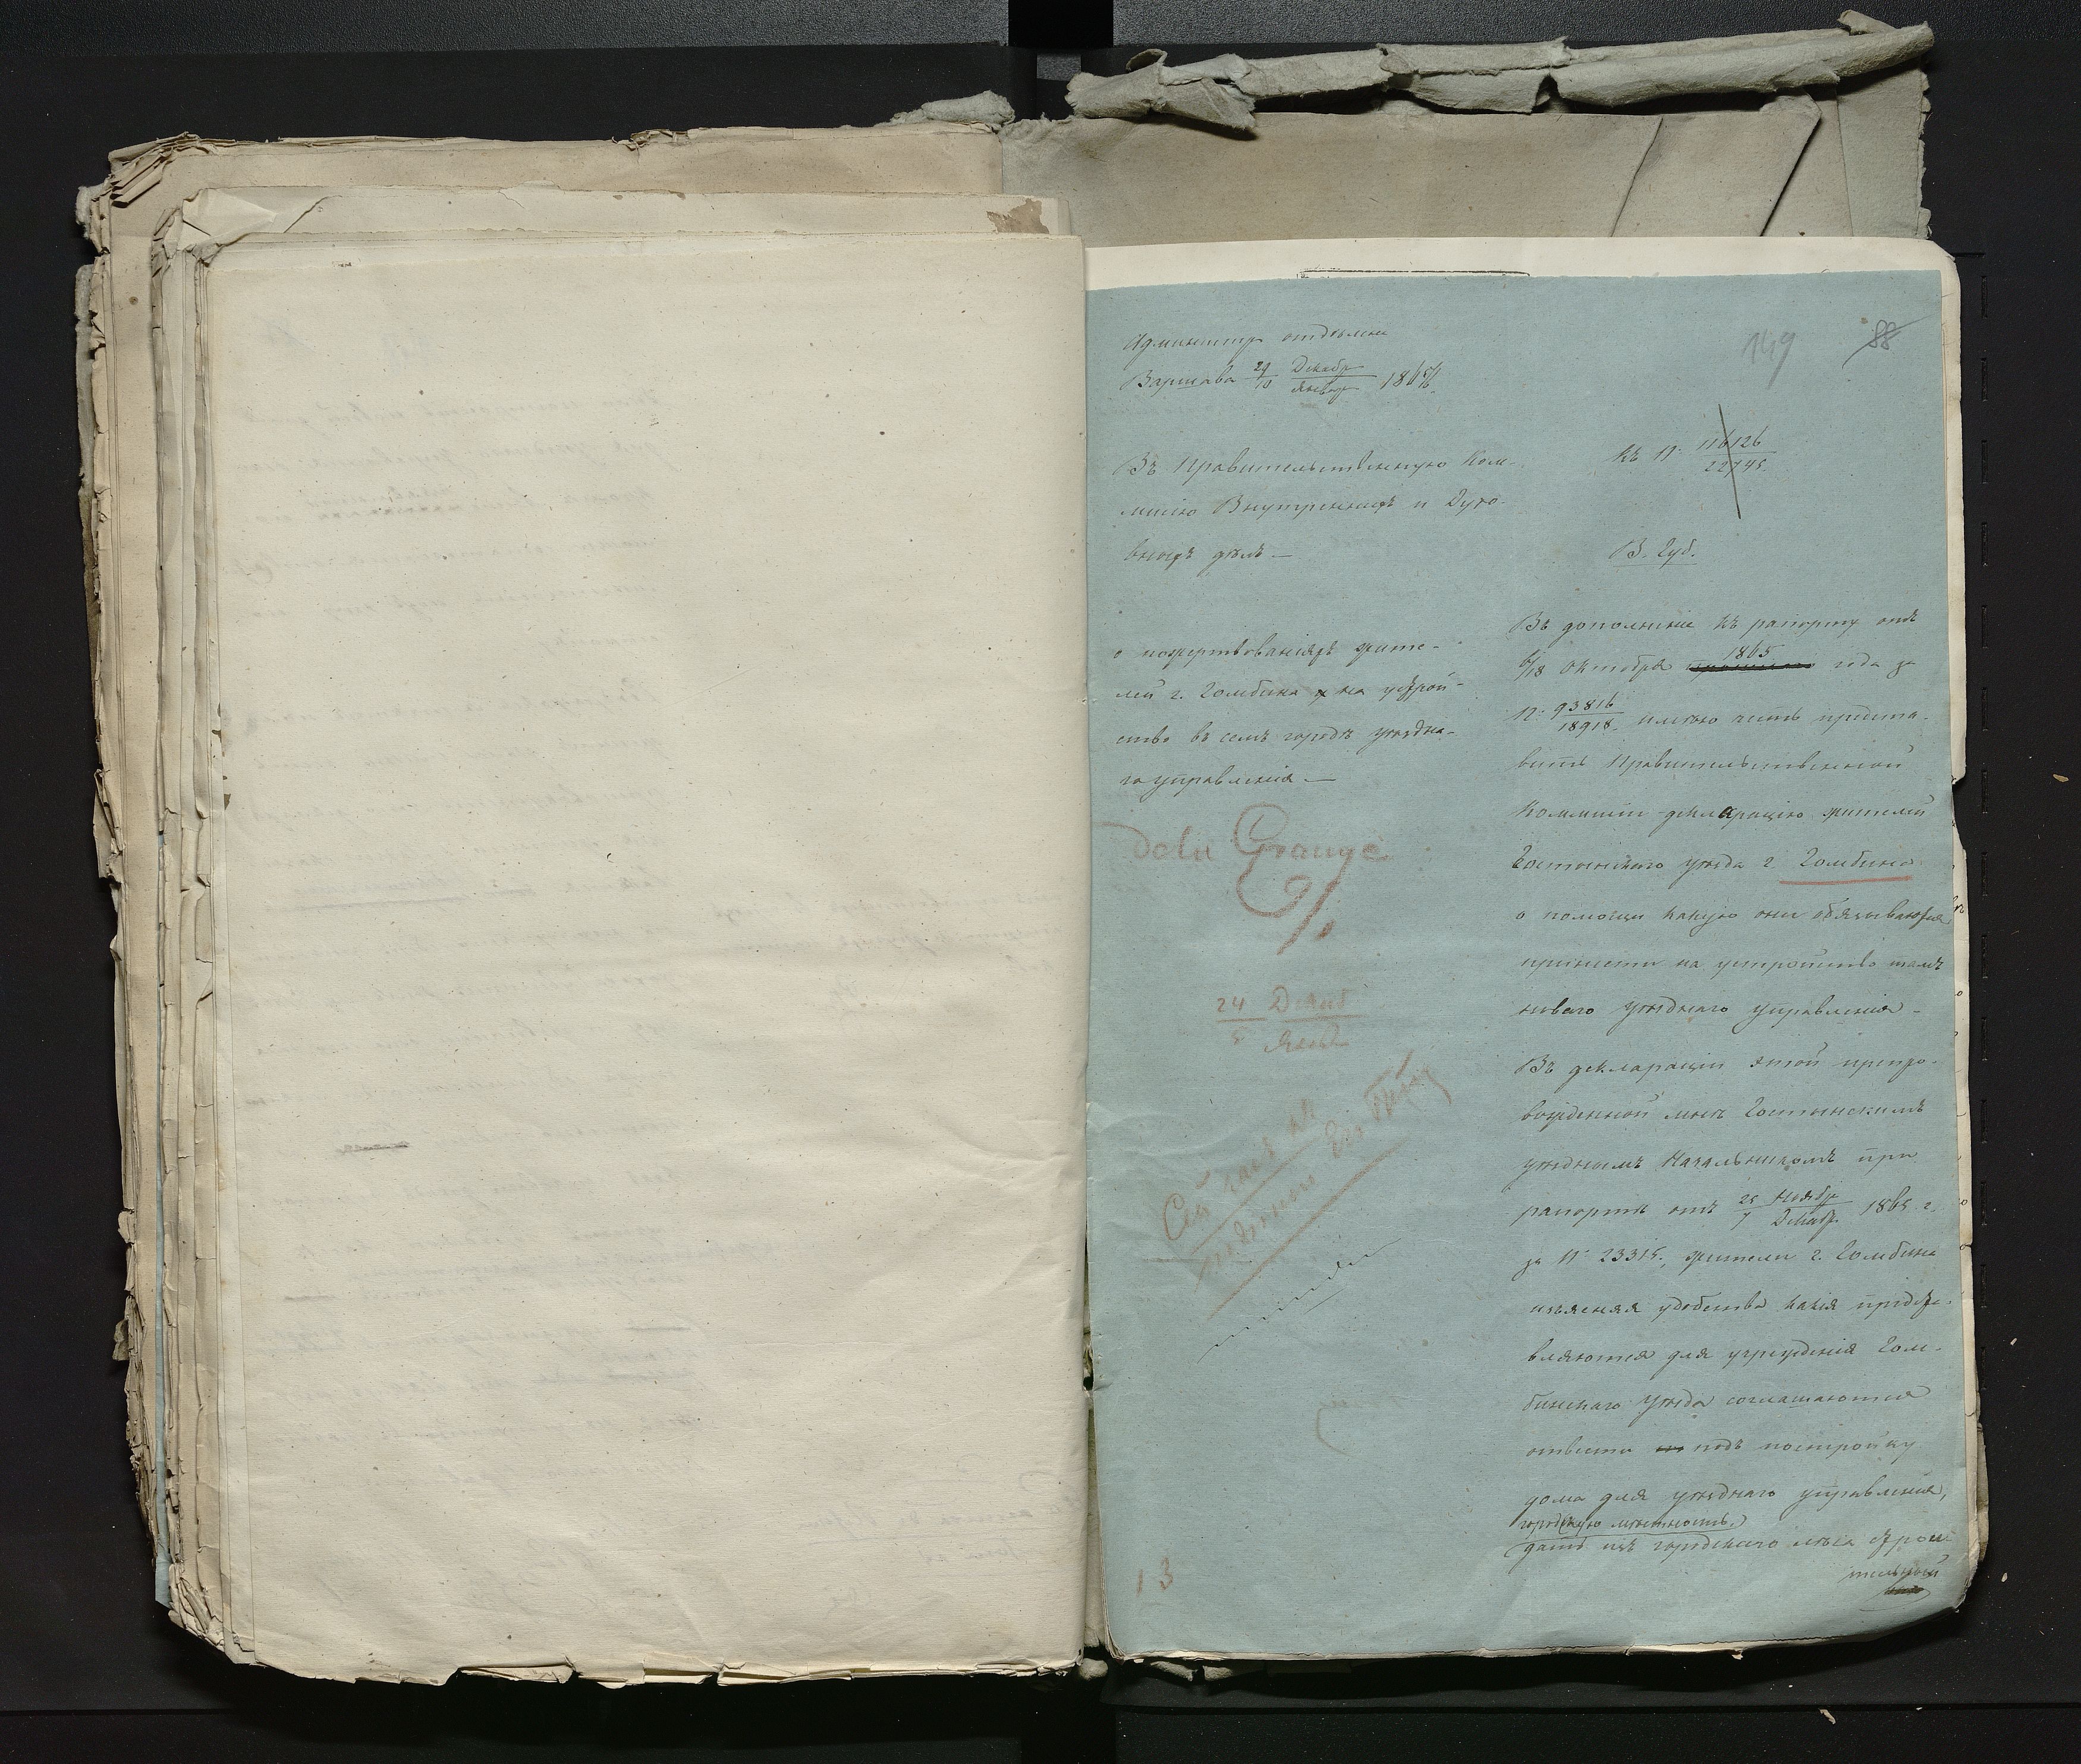 Администр отдѣленіе
Варшава 29/10 Декабр/Январ 1865/6
149
88
Въ Правительственную Ком-
мисію Внутреннихъ и Духо-
вныхъ дѣлъ —
Къ № 116126/22745.
В. Губ.
о пожертвованіяхъ жите-
лей г. Гомбина на устрой-
ство въ семъ городѣ уѣздна-
го управленія —
dela Grange
24/5 Декаб/Янв
Сей часъ
13
Въ дополненіе къ рапорту отъ
6/18 Октября 1865 года за
№: 93816/18918. имѣю честь предста-
вить Правительственной
Коммисіи декларацію жителей
Гостынскаго уѣзда г. Гомбина
о помощи какую они обязываются
принести на устройство тамъ
новаго уѣзднаго управленія —
Въ деклараціи этой препро-
вожденной мнѣ Гостынскимъ
уѣзднымъ Начальникомъ при
рапортѣ отъ 25/7 Ноябр/Декабр 1865 г.
за № 23315., жители г. Гомбина
изъясняя удобства какія предста-
вляются для учрежденія Гом-
бинскаго уѣзда соглашаются
отвести подъ постройку
дома для уѣзднаго управленія,
городскую мѣстность,
дать изъ городскаго лѣса строи
тельный